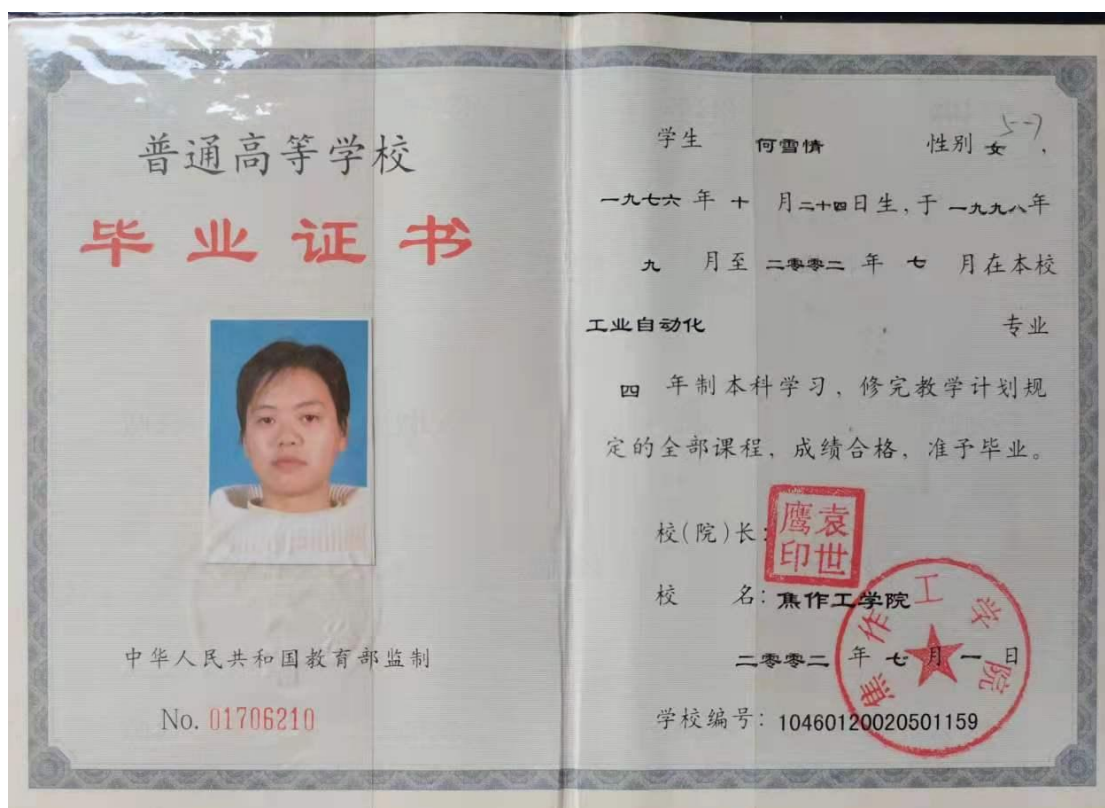 普通高等学校
毕业证书
中华人民共和国教育部监制
No. 01706210
学生 何雪情 性别 女 ,
5-7
一九七六 年 十 月二十四日生,于 一九九八年
九 月至 二零零二 年 七 月在本校
工业自动化 专业
四 年制本科学习，修完教学计划规
定的全部课程，成绩合格，准予毕业。
校(院)长:
袁世鹰印
校 名: 焦作工学院
焦作工学院
二零零二 年 七 月 一 日
学校编号: 10460120020501159